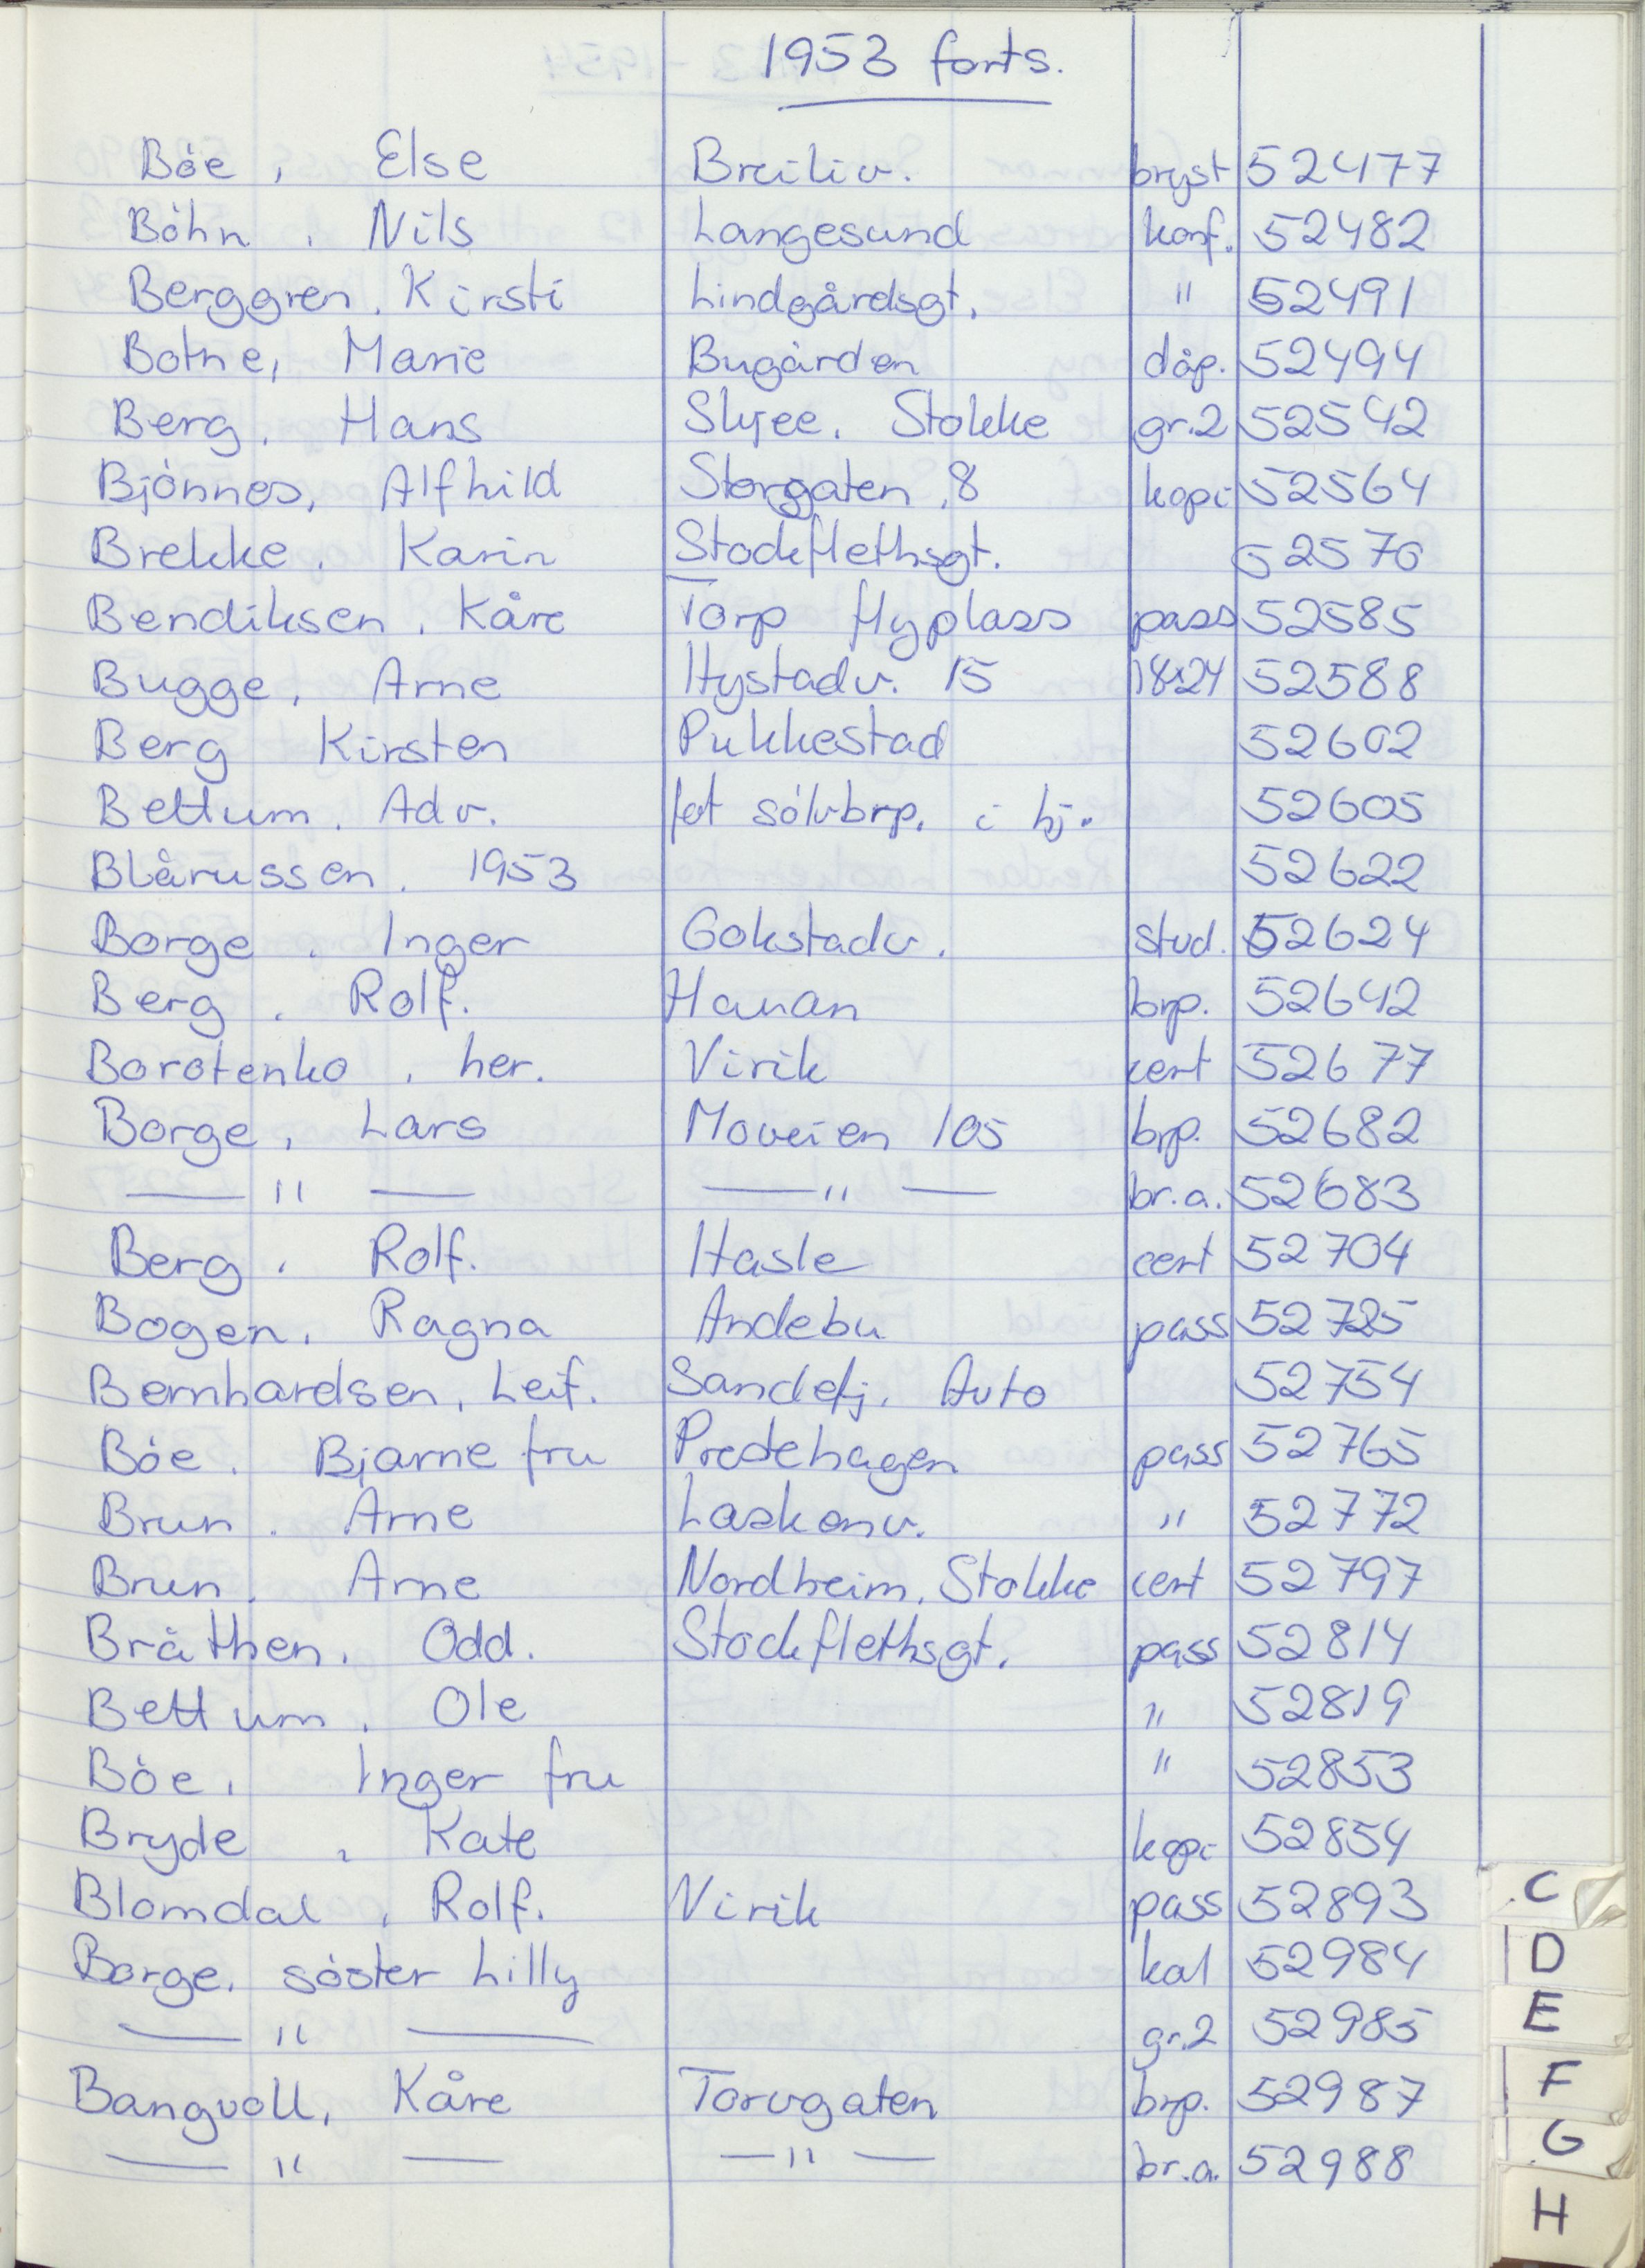 1953 forts.
Böe, Else Breiliv. bryst 52477
Böhn, Nils Langesund konf. 52482
Berggren, Kirsti Lindgårdsgt. " 52491
Botne, Marie Bugården dåp. 52494
Berg, Hans Skjee, Stokke gr.2 52542
Bjönnes, Alfhild Storgaten, 8 kopi 52564
Brekke, Karin Stockflethsgt. 52570
Bendiksen, Kåre Torp flyplass pass 52585
Bugge, Arne Hystadv. 15 18x24 52588
Berg Kirsten Pukkestad 52602
Bettum, Adv. fot sölvbrp. i hj. 52605
Blårussen, 1953 52622
Borge, Inger Gokstadv. stud. 52624
Berg, Rolf. Hauan brp. 52642
Borotenko, her. Virik cert 52677
Borge, Lars Moveien 105 brp. 52682
— " — — " — br.a. 52683
Berg, Rolf. Hasle cert 52704
Bogen, Ragna Andebu pass 52725
Bernhardsen, Leif. Sandefj. Auto 52754
Böe, Bjarne fru Prestehagen pass 52765
Brun, Arne Laskenv. " 52772
Brun, Arne Nordheim, Stokke cert 52797
Bråthen, Odd. Stockflethsgt. pass 52814
Bettum, Ole " 52819
Böe, Inger fru " 52853
Bryde, Kate kopi 52854
Blomdal, Rolf. Virik pass 52893
Borge, söster Lilly kal 52984
— " — gr.2 52985
Bangvoll, Kåre Torvgaten brp. 52987
— " — — " — br.a. 52988
C
D
E
F
G
H